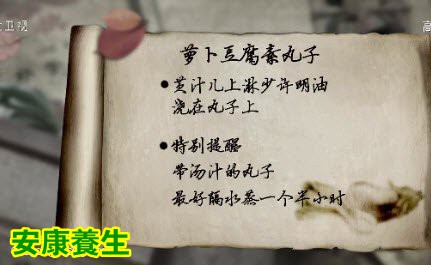 卫视
高
萝卜豆腐素丸子
●芡汁儿上淋少许明油
浇在丸子上
●特别提醒
带汤汁的丸子
最好隔水蒸一个半小时
安康養生